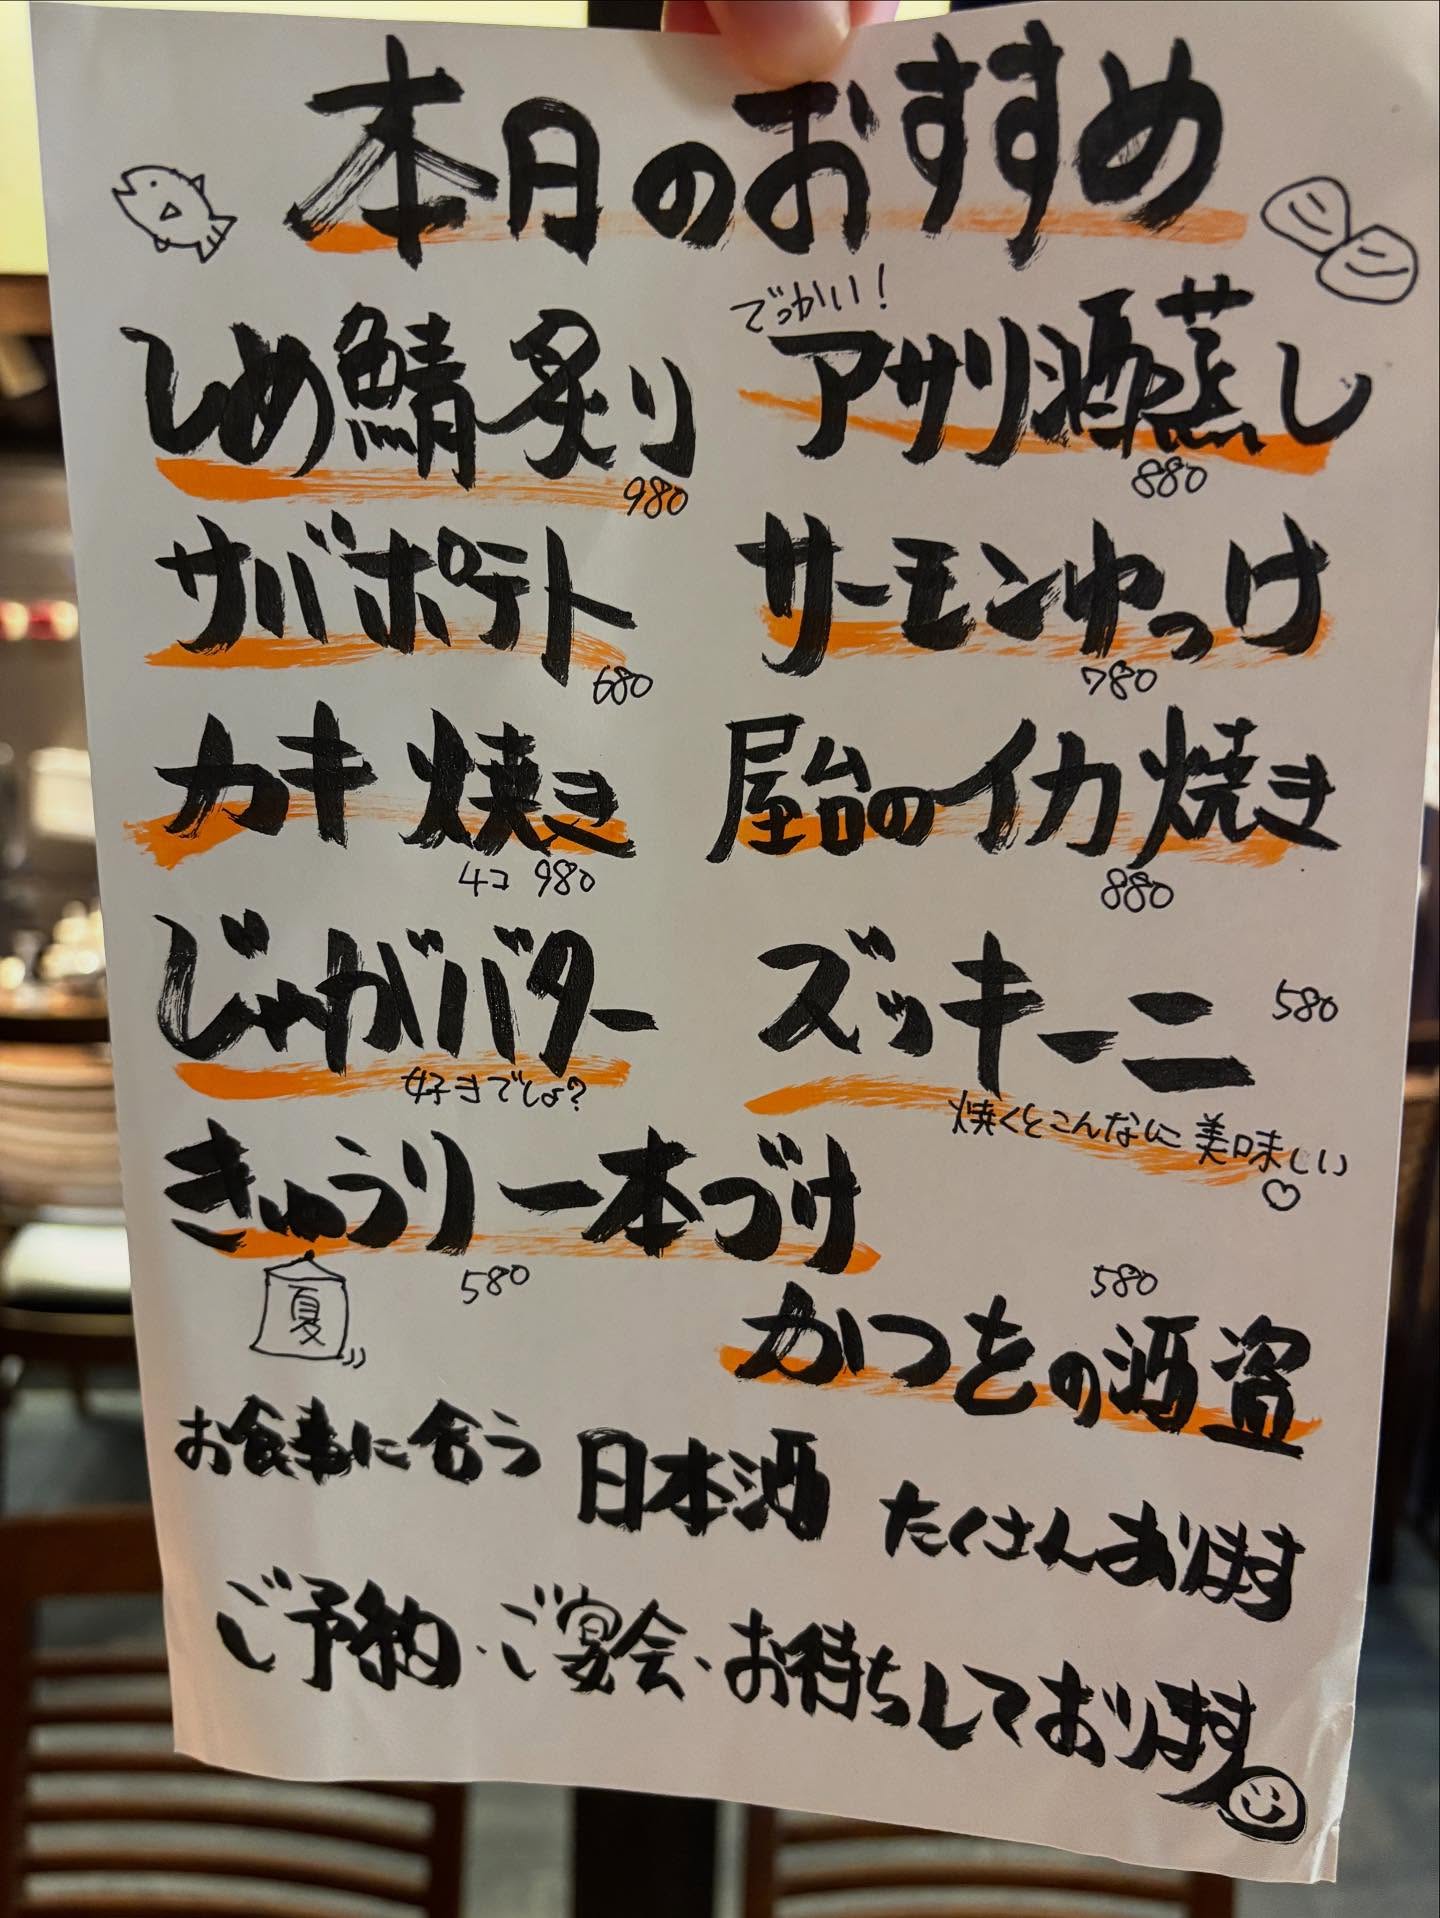 本日のおすすめ
しめ鯖炙り
980
でっかい!
アサリ酒蒸し
880
サバポテト
680
サーモンゆっけ
780
カキ焼き
4コ 980
屋台のイカ焼き
880
じゃがバター
好きでしょ?
ズッキーニ
580
焼くとこんなに美味しい♡
きゅうり一本づけ
580
夏
580
かつをの酒盗
お食事に合う 日本酒 たくさんあります
ご予約・ご宴会・お待ちしております